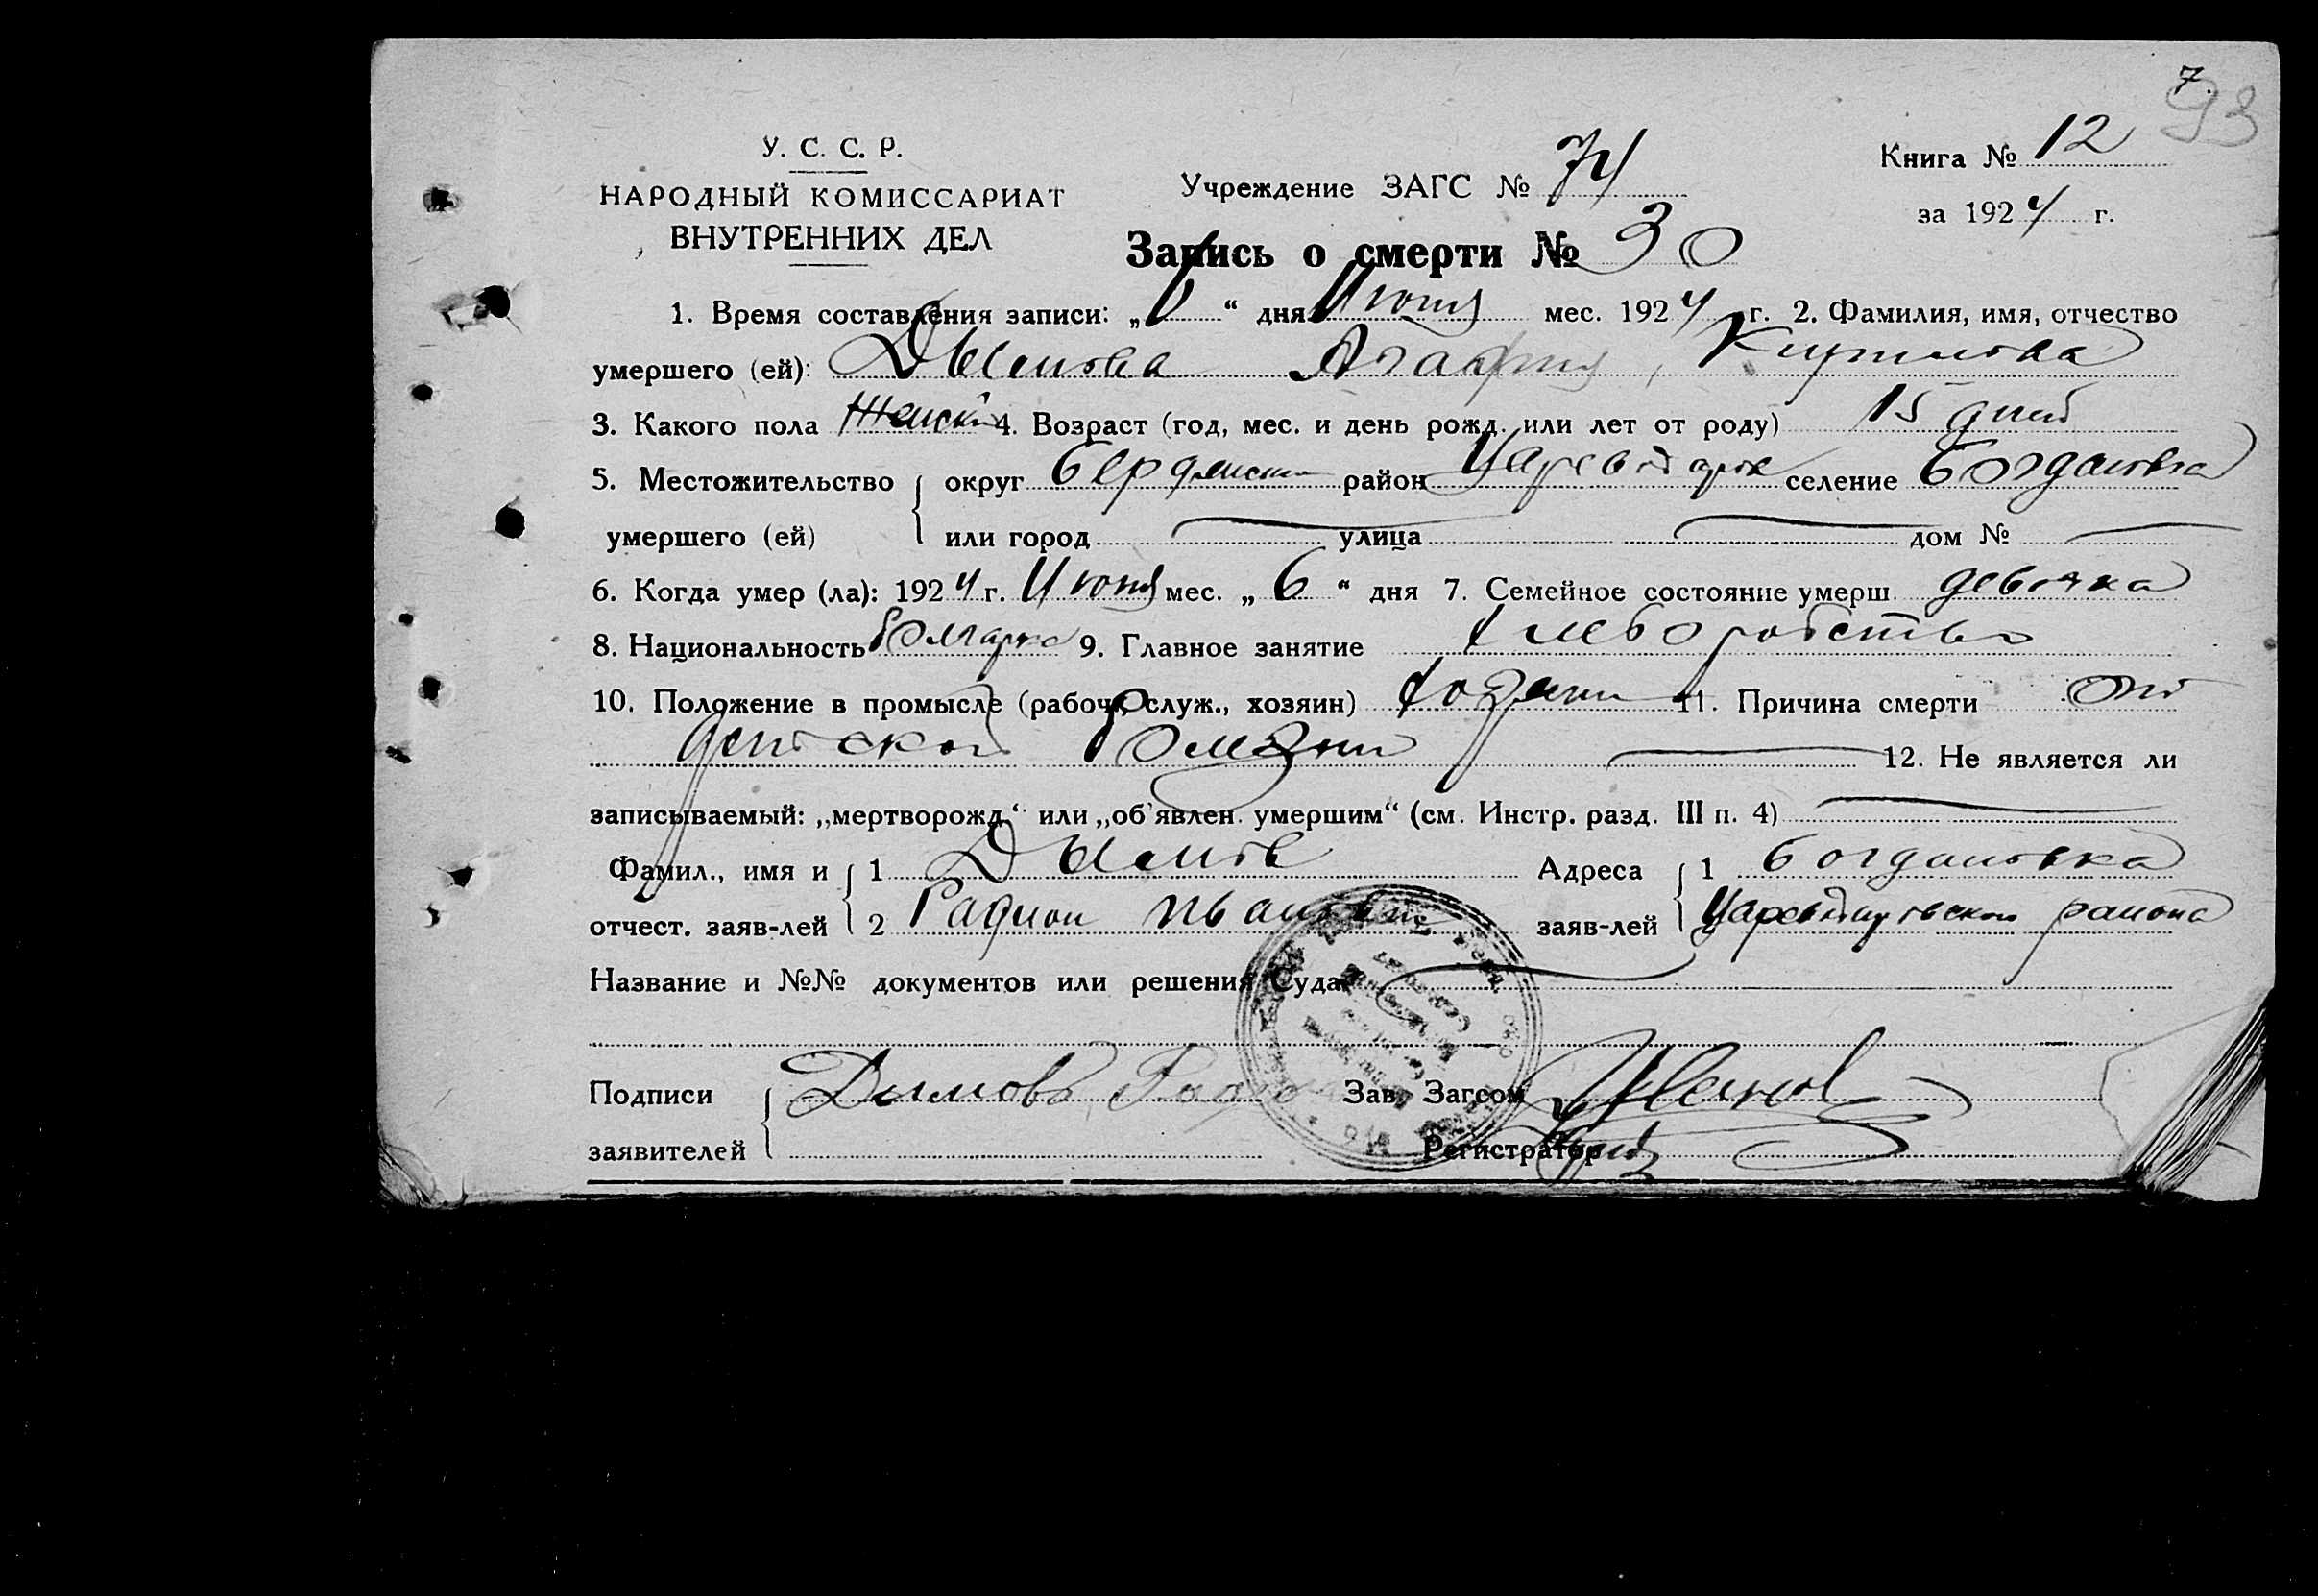 7.
93
У. С. С. Р.
НАРОДНЫЙ КОМИССАРИАТ
ВНУТРЕННИХ ДЕЛ
Учреждение ЗАГС № 74
Книга № 12
за 1924 г.
Запись о смерти № 30
1. Время составления записи: „6“ дня Июня мес. 1924 г. 2. Фамилия, имя, отчество
умершего (ей): Дымова Агафия, Кирилова
3. Какого пола Женский 4. Возраст (год, мес. и день рожд. или лет от роду) 15 дней
5. Местожительство округ Бердянский район селение Богдановка
умершего (ей) или город улица дом №
6. Когда умер (ла): 1924 г. Июня мес. „6“ дня 7. Семейное состояние умерш. девочка
8. Национальность болгарка 9. Главное занятие хлеборобство
10. Положение в промысле (рабоч., служ., хозяин) хозяин 11. Причина смерти от
детской болезни 12. Не является ли
записываемый: „мертворожд.“ или „об'явлен. умершим“ (см. Инстр. разд. III п. 4)
Фамил., имя и 1 Дымов Адреса 1 Богдановка
отчест. заяв-лей 2 Радион Иванович заяв-лей района
Название и №№ документов или решения Суда
Подписи Дымовъ Зав. Загсом
заявителей Регистратор